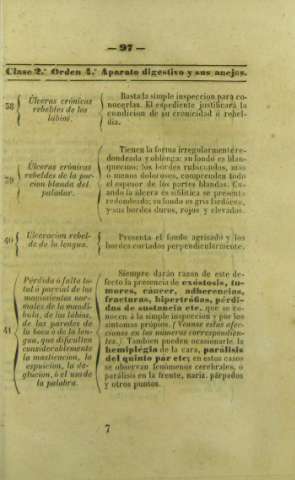 — 97 —
Clase 2.ª Orden 4.º Aparato digestivo y sus anejos.
38
Úlceras crónicas
rebeldes de los
labios.
Basta la simple inspeccion para co-
nocerlas. El espediente justificará la
condicion de su cronicidad ó rebel-
dia.
39
Úlceras crónicas
rebeldes de la por-
cion blanda del
paladar.
Tienen la forma irregularmente re-
dondeada y oblonga: su fondo es blan-
quecino: los bordes rubicundos, más
ó menos dolorosos, comprenden todo
el espesor de las partes blandas. Cu-
ando la úlcera es sifilítica se presenta
redondeada; su fondo es gris lardáceo,
y sus bordes duros, rojos y elevados.
40
Ulceracion rebel-
de de la lengua.
Presenta el fondo agrisado y los
bordes cortados perpendicularmente.
41
Pérdida ó falta to-
tal ó parcial de los
movimientos nor-
males de la mandí-
bula, de los labios,
de las paredes de
la boca ó de la len-
gua, que dificulten
considerablemente
la masticacion, la
espuicion, la de-
glucion, ó el uso de
la palabra.
Siempre darán razon de este de-
fecto la presencia de exóstosis, tu-
mores, cáncer, adherencias,
fracturas, hipertrófias, pérdi-
das de sustancia etc, que se co-
nocen á la simple inspeccion y por los
síntomas propios. (Véanse estas afec-
ciones en los números correspondien-
tes.) Tambien pueden ocasionarle la
hemiplégia de la cara, parálisis
del quinto par etc; en estos casos
se observan fenómenos cerebrales, ó
parálisis en la frente, nariz, párpados
y otros puntos.
7